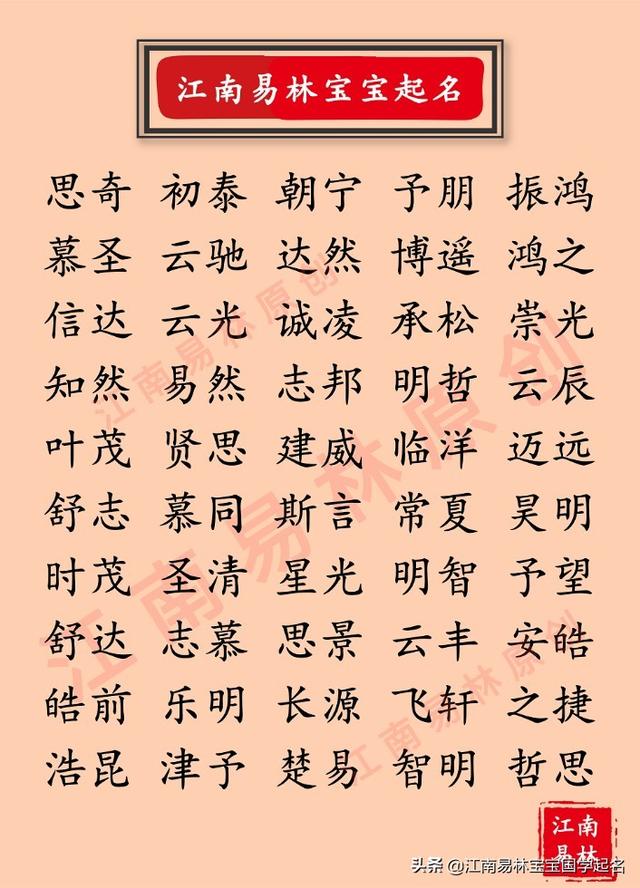 江南易林宝宝起名
思奇 初泰 朝宁 予朋 振鸿
慕圣 云驰 达然 博遥 鸿之
信达 云光 诚凌 承松 崇光
知然 易然 志邦 明哲 云辰
叶茂 贤思 建威 临洋 迈远
舒志 慕同 斯言 常夏 昊明
时茂 圣清 星光 明智 予望
舒达 志慕 思景 云丰 安皓
皓前 乐明 长源 飞轩 之捷
浩昆 津予 楚易 智明 哲思
江南易林原创
江南易林原创
江南易林原创
江南
易林
头条 @江南易林宝宝国学起名